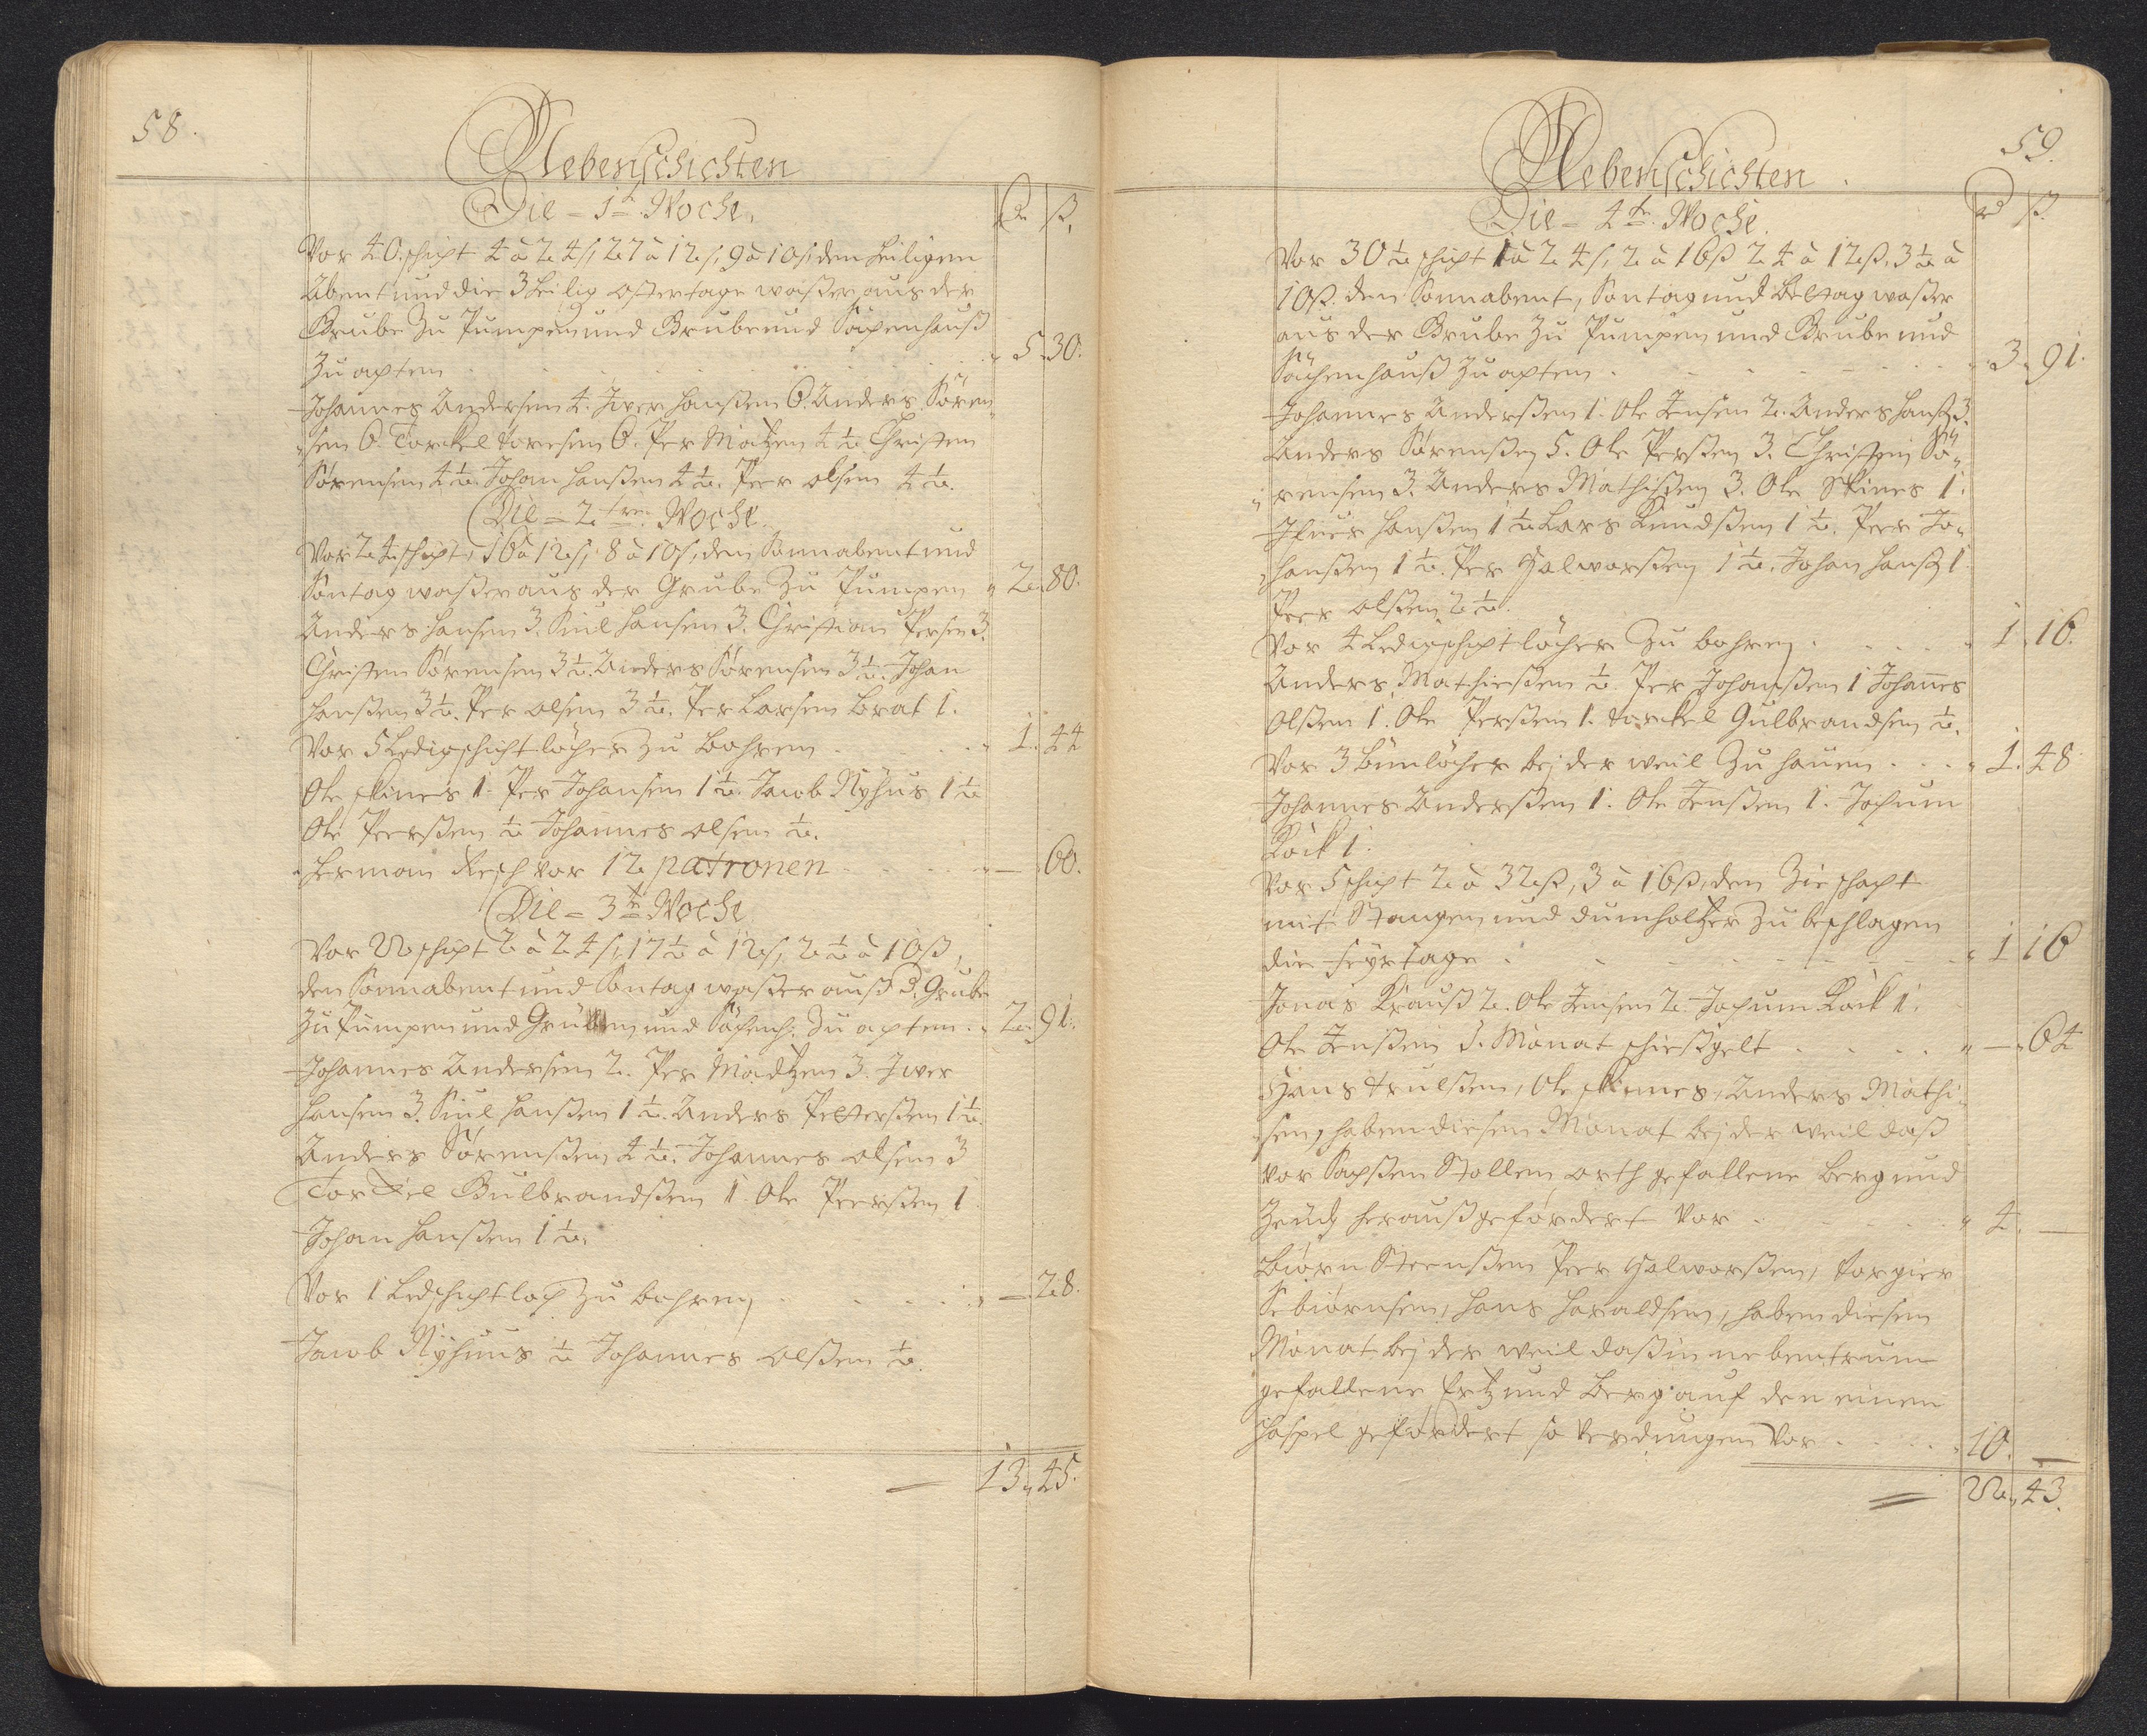 58.
Nebenschichten
Die = 1te Woche.
R ß.
Vor 40. schicht 4 à 24 s, 27 à 12 s, 9 à 10 s, den heiligen
Abent und die 3 heilig ostertage waßer aus der
Grube zu Pumpen und Grube und Sachenhauß
zu achten . . . . . . . " 5 " 30.
Johannes Andersen 4. Iver Hanßen 6. Anders Sören
sen 6. Torkel Toresen 6. Per Matzen 4 ½. Christen
Sörensen 4 ½. Johan Hanßen 4 ½. Peer olsen 4 ½.
Die = 2te Woche.
Vor 24. schicht, 16 à 12 s, 8 à 10 s, den Sonnabent und
Sontag waßer aus der Grube zu Pumpen " 2 " 80.
Anders Hansen 3. Siul Hansen 3. Christian Persen 3.
Christen Sörensen 3 ½. Anders Sörensen 3 ½. Johan
Hanßen 3 ½. Per olsen 3 ½. Per Larsen Brat 1.
Vor 5 Ledigschicht löcher zu bohren . . . . " 1 " 44
Ole skines 1. Per Johansen 1 ½. Jacob Nyhus 1 ½
Ole Peerßen ½ Johannes olsen ½.
Herman Resch vor 12 patronen . . . . " — " 60.
Die = 3te Woche
Vor 22 schicht 2 à 24 s, 17 ½ à 12 s, 2 ½ à 10 ß,
den Sonnabent und Sontag waßer auß d. Grube
zu Pumpen und Gruben und Sachenh: zu achten . " 2 " 91.
Johannes Andersen 2. Per Madtzen 3. Iver
Hansen 3. Siul Hanßen 1 ½. Anders Pelterßen 1 ½.
Anders Sörenßen 4 ½. Johannes olsen 3
Torkel Gulbrandßen 1. Ole Peerßen 1
Johan Hanßen 1 ½.
Vor 1 Ledschicht loch zu bohren . . . . " — " 28.
Jacob Nyhuus ½ Johannes olßen ½.
— 13 " 45.
59.
Nebenschichten.
Die = 4te Woche.
R ß.
Vor 30 ½ schicht 1 à 24 s, 2 à 16 ß 24 à 12 ß, 3 ½ à
10 ß. den Sonnabent, Sontag und bettag waßer
aus der Grube zu Pumpen und Grube und
Sachenhauß zu achten . . . . . " 3 " 91.
Johannes Anderßen 1. Ole Jensen 2. Anders Hanß 3.
Anders Sörenßen 5. Ole Perßen 3. Christen Sö
" rensen 3. Anders Mathißen 3. Ole Skines 1.
Ifver Hanßen 1 ½ Lars Knudßen 1 ½. Peer Jo
hanßen 1 ½. Per Halworßen 1 ½. Johan Hanß 1
Peer olßen 2 ½.
Vor 4 Ledigschicht löcher zu bohren . . . . " 1 " 16.
Anders Mathießen ½. Per Johanßen 1 Johannes
Olßen 1. Ole Perßen 1. Torkel Gulbrandsen ½.
Vor 3 bünlöcher bej der weil zu hauen . . . " 1 " 48
Johannes Anderßen 1. Ole Jenßen 1. Jochum
Köck 1.
Vor 5 schicht 2 à 32 ß, 3 à 16 ß, den Zieschacht
mit Stangen und dumholtzer zu beschlagen
die Feyrtage . . . . . . . " 1 " 16
Jonas Krauß 2. Ole Jensen 2. Jochum Köck 1.
Ole Jenßen 1. Monat schießgelt . . . . " — " 64
Hans Trulßen, Ole skines, Anders Mathi
sen, haben diesen Monat bej der weil daß
vor Sachßen Stollen orth gefallene berg und
Zeüch herauß gefördert vor . . . . " 4. —
Biörn Steenßen Peer Halworßen, Torgier
Sebiörnsen, Hans Haraldsen, haben diesen
Monat bej der weil daß in nebentrum
gefallene Ertz und berg auf den einen
Haspel gefördert so verdungen vor . . . " 10. —
= 22 " 43.